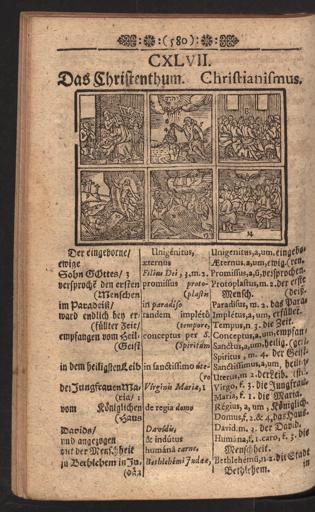 :(580):
CXLVII.
Das Christenthum. Christianismus.
Der eingeborne/
ewige
Sohn GOttes/ 3
versprochẽ den ersten
(Menschen
im Paradeiß/
ward endlich bey er-
(füllter Zeit/
empfangen vom Heil.
(Geist
in dem heiligsten Leib
der Jungfrauen Ma-
(ria/ 1
vom Königlichen
(Haus
Davids/
und angezogen
mit der Menschheit
zu Bethlehem in Ju-
Unigenitus,
æternus
Filius Dei, 3. m. 2.
promissus proto-
(plastis
in paradiso
tandem impletô
(tempore,
conceptus per S.
(Spiritum
in sanctissimo ute-
(ro
Virginis Mariæ, 1
de regia domo
Davidis,
& indútus
humánâ carne,
Bethlehémi Judææ,
Unigenitus, a, um, eingebo-
Æternus, a, um, ewig. (ren.
Promissus, a, ũ, versprochen.
Protoplastus, m. 2. der erste
Mensch.
Paradisus, m. 2. das Para-
Implétus, a, um, erfüllet.
Tempus, n. 3. die Zeit.
Conceptus, a, um, empfan-
Sanctus, a, um, heilig.
Spiritus, m. 4. der Geist.
Sanctissimus, a, um, heiligst.
Uterus, m. 2. der Leib.
Virgo, f. 3. die Jungfrau.
Maria, f. 1. die Maria.
Régius, a, um, Königlich.
Domus, f. 2. & 4. das Haus.
David, m. 3. der David.
Humána, f. 1. caro, f. 3. die
Menschheit.
Bethlehémũ, n. 2. die Stadt
Bethlehem. in